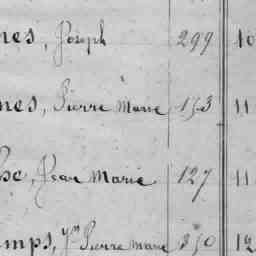 nes, Joseph 299 10
nes, Pierre Marie 153 11
se, Jean Marie 127 11
mps, Jn Pierre Marie 350 12